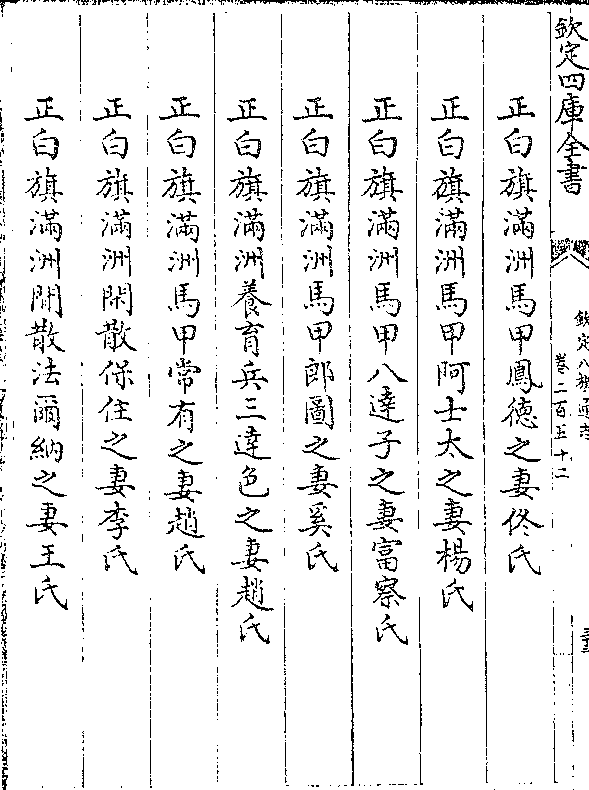 欽定四庫全書
欽定八旗通志
卷二百五十二
正白旗滿洲馬甲鳳德之妻佟氏
正白旗滿洲馬甲阿士太之妻楊氏
正白旗滿洲馬甲八達子之妻富察氏
正白旗滿洲馬甲郎圖之妻奚氏
正白旗滿洲養育兵三達色之妻趙氏
正白旗滿洲馬甲常有之妻趙氏
正白旗滿洲閑散保住之妻李氏
正白旗滿洲閒散法爾納之妻王氏